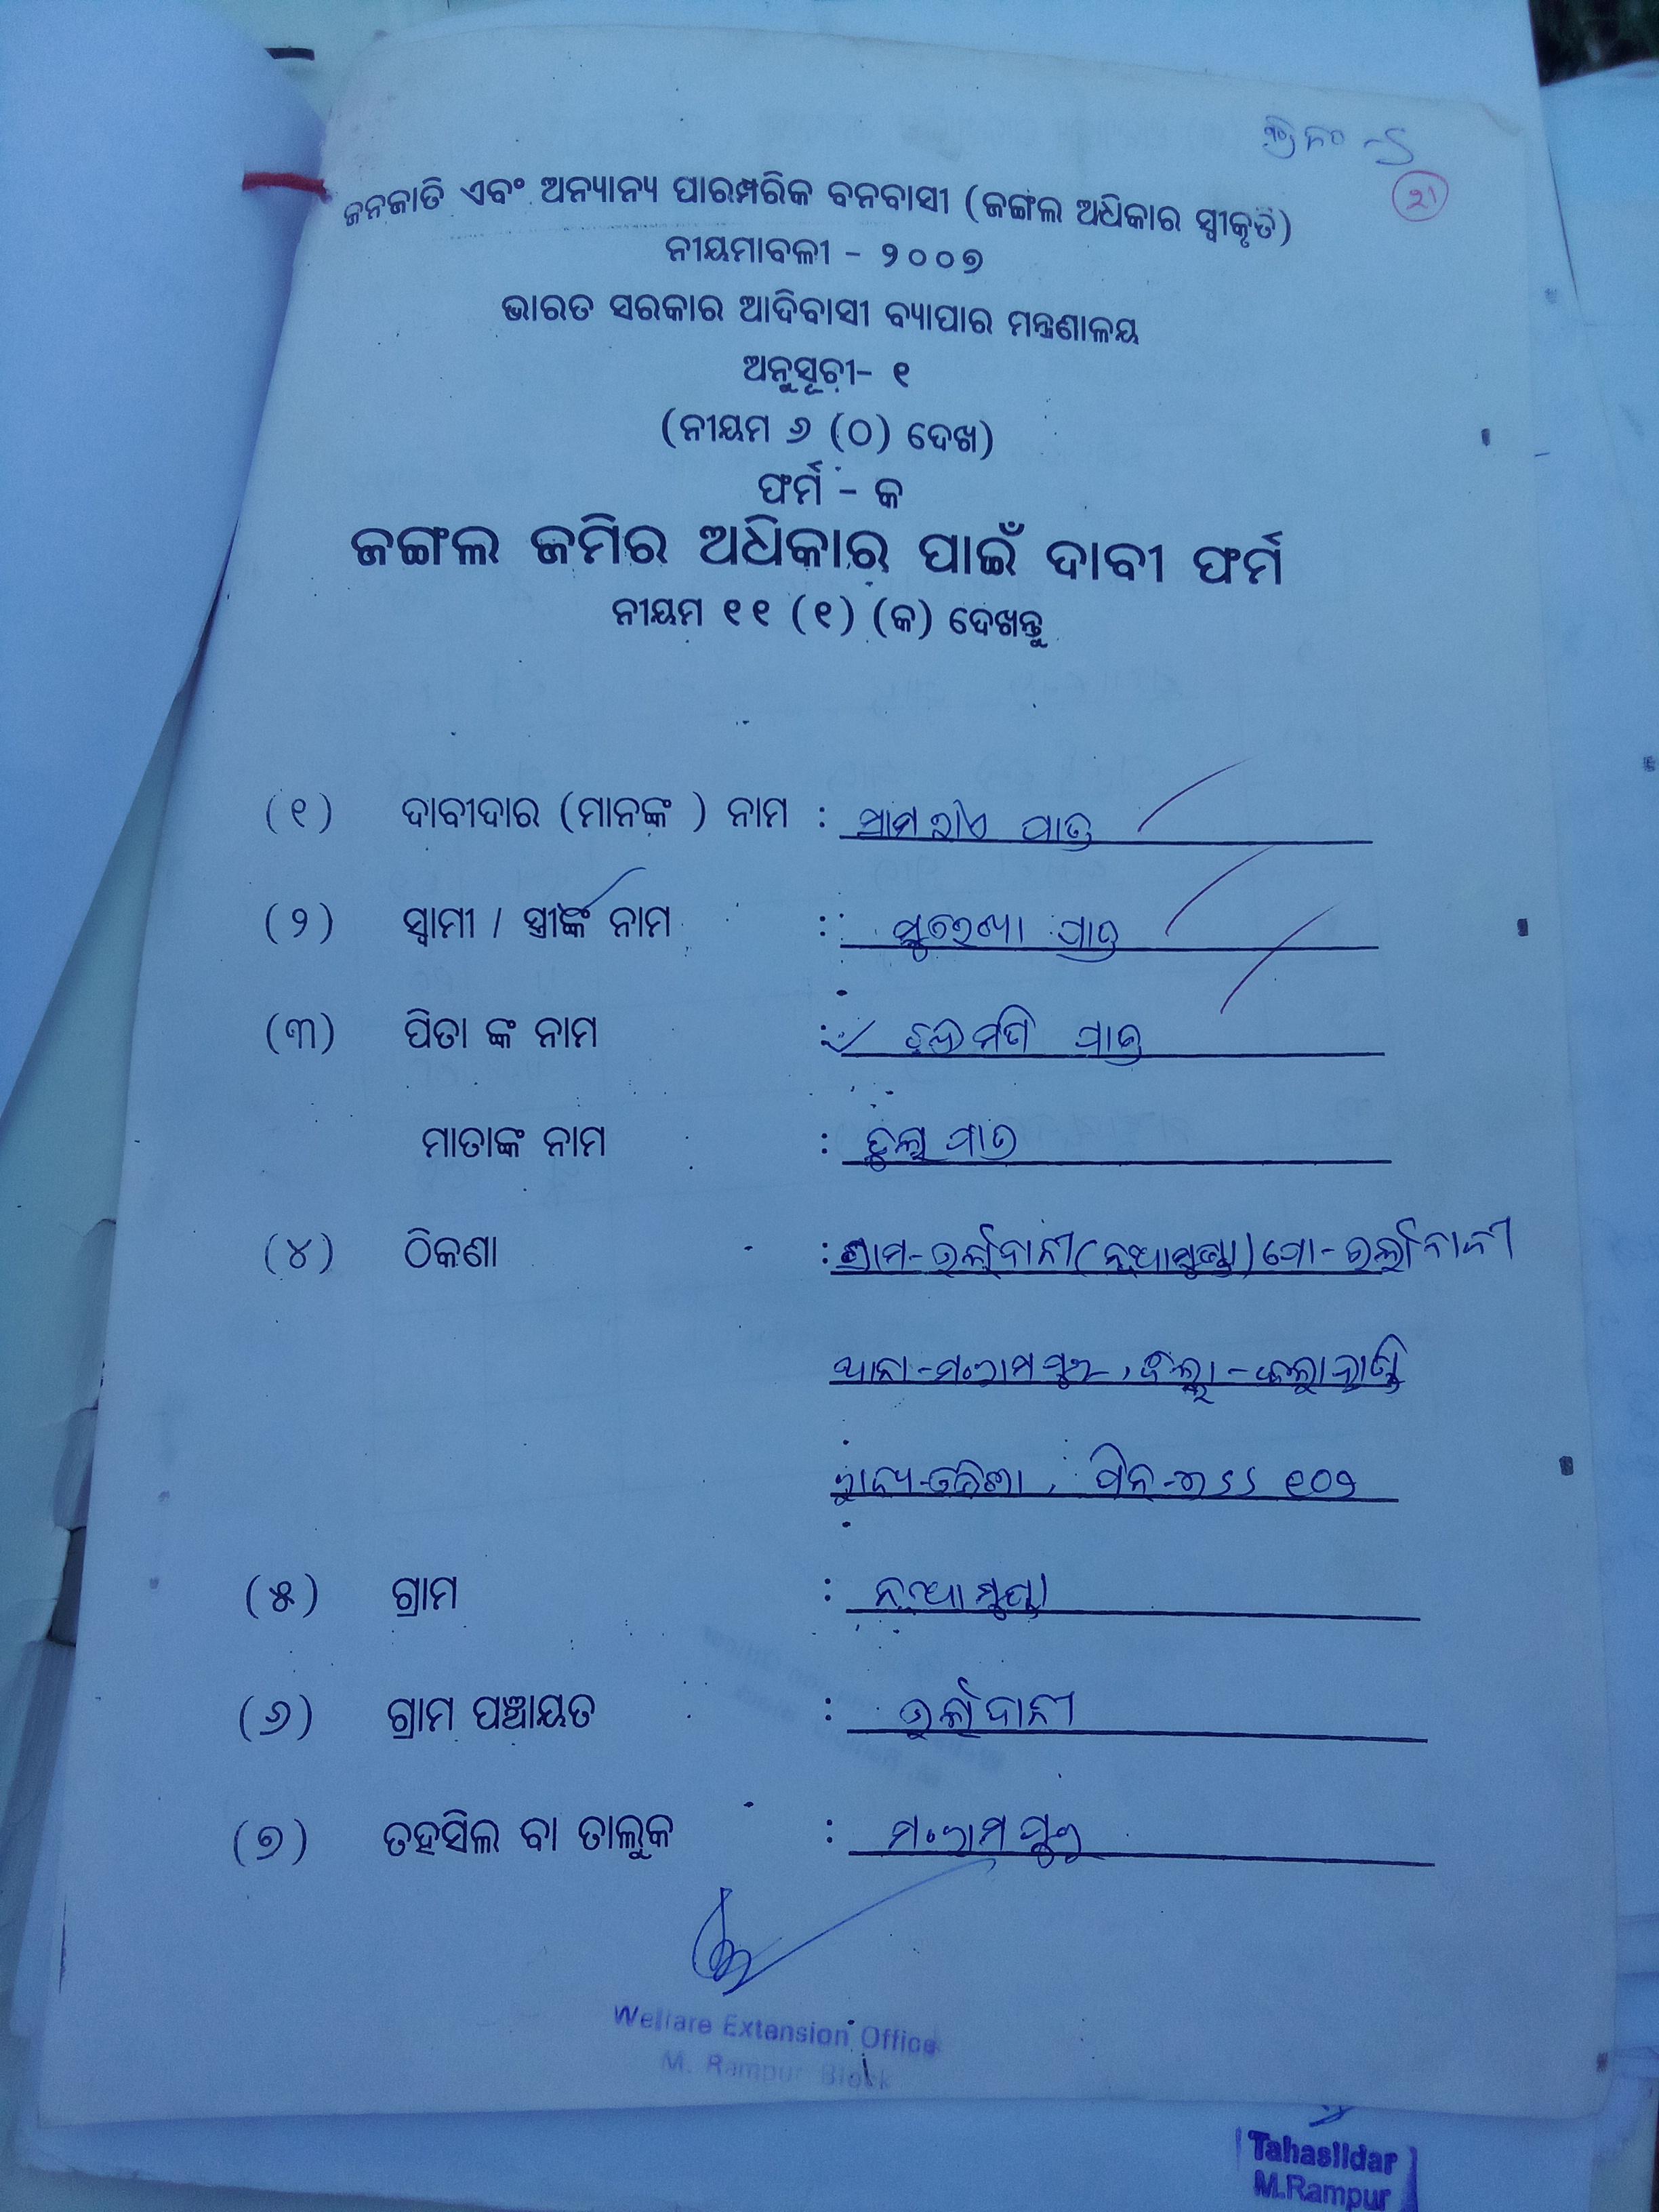 ଜନଜାତି ଏବଂ ଅନ୍ୟାନ୍ୟ ପାରମ୍ପରିକ ବନବାସୀ (ଜଙ୍ଗଲ ଅଧିକାର ସ୍ୱୀକୃତି)
୨୧
ନୀୟମାବଳୀ - ୨୦୦୭
ଭାରତ ସରକାର ଆଦିବାସୀ ବ୍ୟାପାର ମନ୍ତ୍ରଣାଳୟ
ଅନୁସୂଚୀ- ୧
(ନୀୟମ ୬ (୦) ଦେଖ)
ଫର୍ମ - କ
ଜଙ୍ଗଲ ଜମିର ଅଧିକାର ପାଇଁ ଦାବୀ ଫର୍ମ
ନୀୟମ ୧୧ (୧) (କ) ଦେଖନ୍ତୁ
(୧) ଦାବୀଦାର (ମାନଙ୍କ ) ନାମ :
(୨) ସ୍ୱାମୀ / ସ୍ତ୍ରୀଙ୍କ ନାମ : ସୁରେଖା
(୩) ପିତା ଙ୍କ ନାମ :
ମାତାଙ୍କ ନାମ :
(୪) ଠିକଣା : ଗ୍ରାମ-
ଥାନା-ମ.ରାମପୁର, ଜିଲ୍ଲା-କଳାହାଣ୍ଡି
ରାଜ୍ୟ-ଓଡିଶା, ପିନ-୭୬୬ ୧୦୨
(୫) ଗ୍ରାମ : ନୂଆମୁଣ୍ଡା
(୬) ଗ୍ରାମ ପଞ୍ଚାୟତ :
(୭) ତହସିଲ ବା ତାଲୁକ : ମ.ରାମପୁର
Welfare Extension Office
M. Rampur Block
Tahasildar
M.Rampur